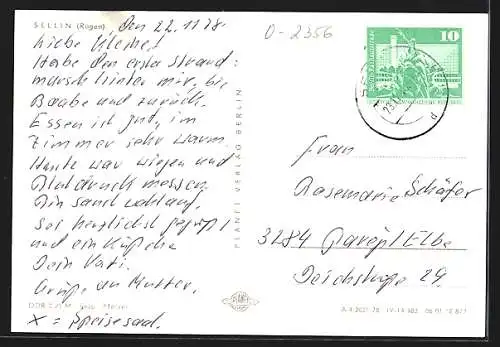 SELLIN (Rügen)
Den 22.11.78.
Liebe Kleine!
Habe den ersten Strand-
marsch hinter mir, bis
Baabe und zurück.
Essen ist gut, im
Zimmer sehr warm.
Heute war wiegen und
Blutdruck messen.
Bin sonst wohlauf.
Sei herzlichst gegrüßt
und ein Küßchen
Dein Vati.
Grüße an Mutter.
DDR
x = Speisesaal.
PLANET VERLAG BERLIN
PLANET
0-2356
10
Frau
Rosemarie Schäfer
3284 Elbe
Deichstraße 29.